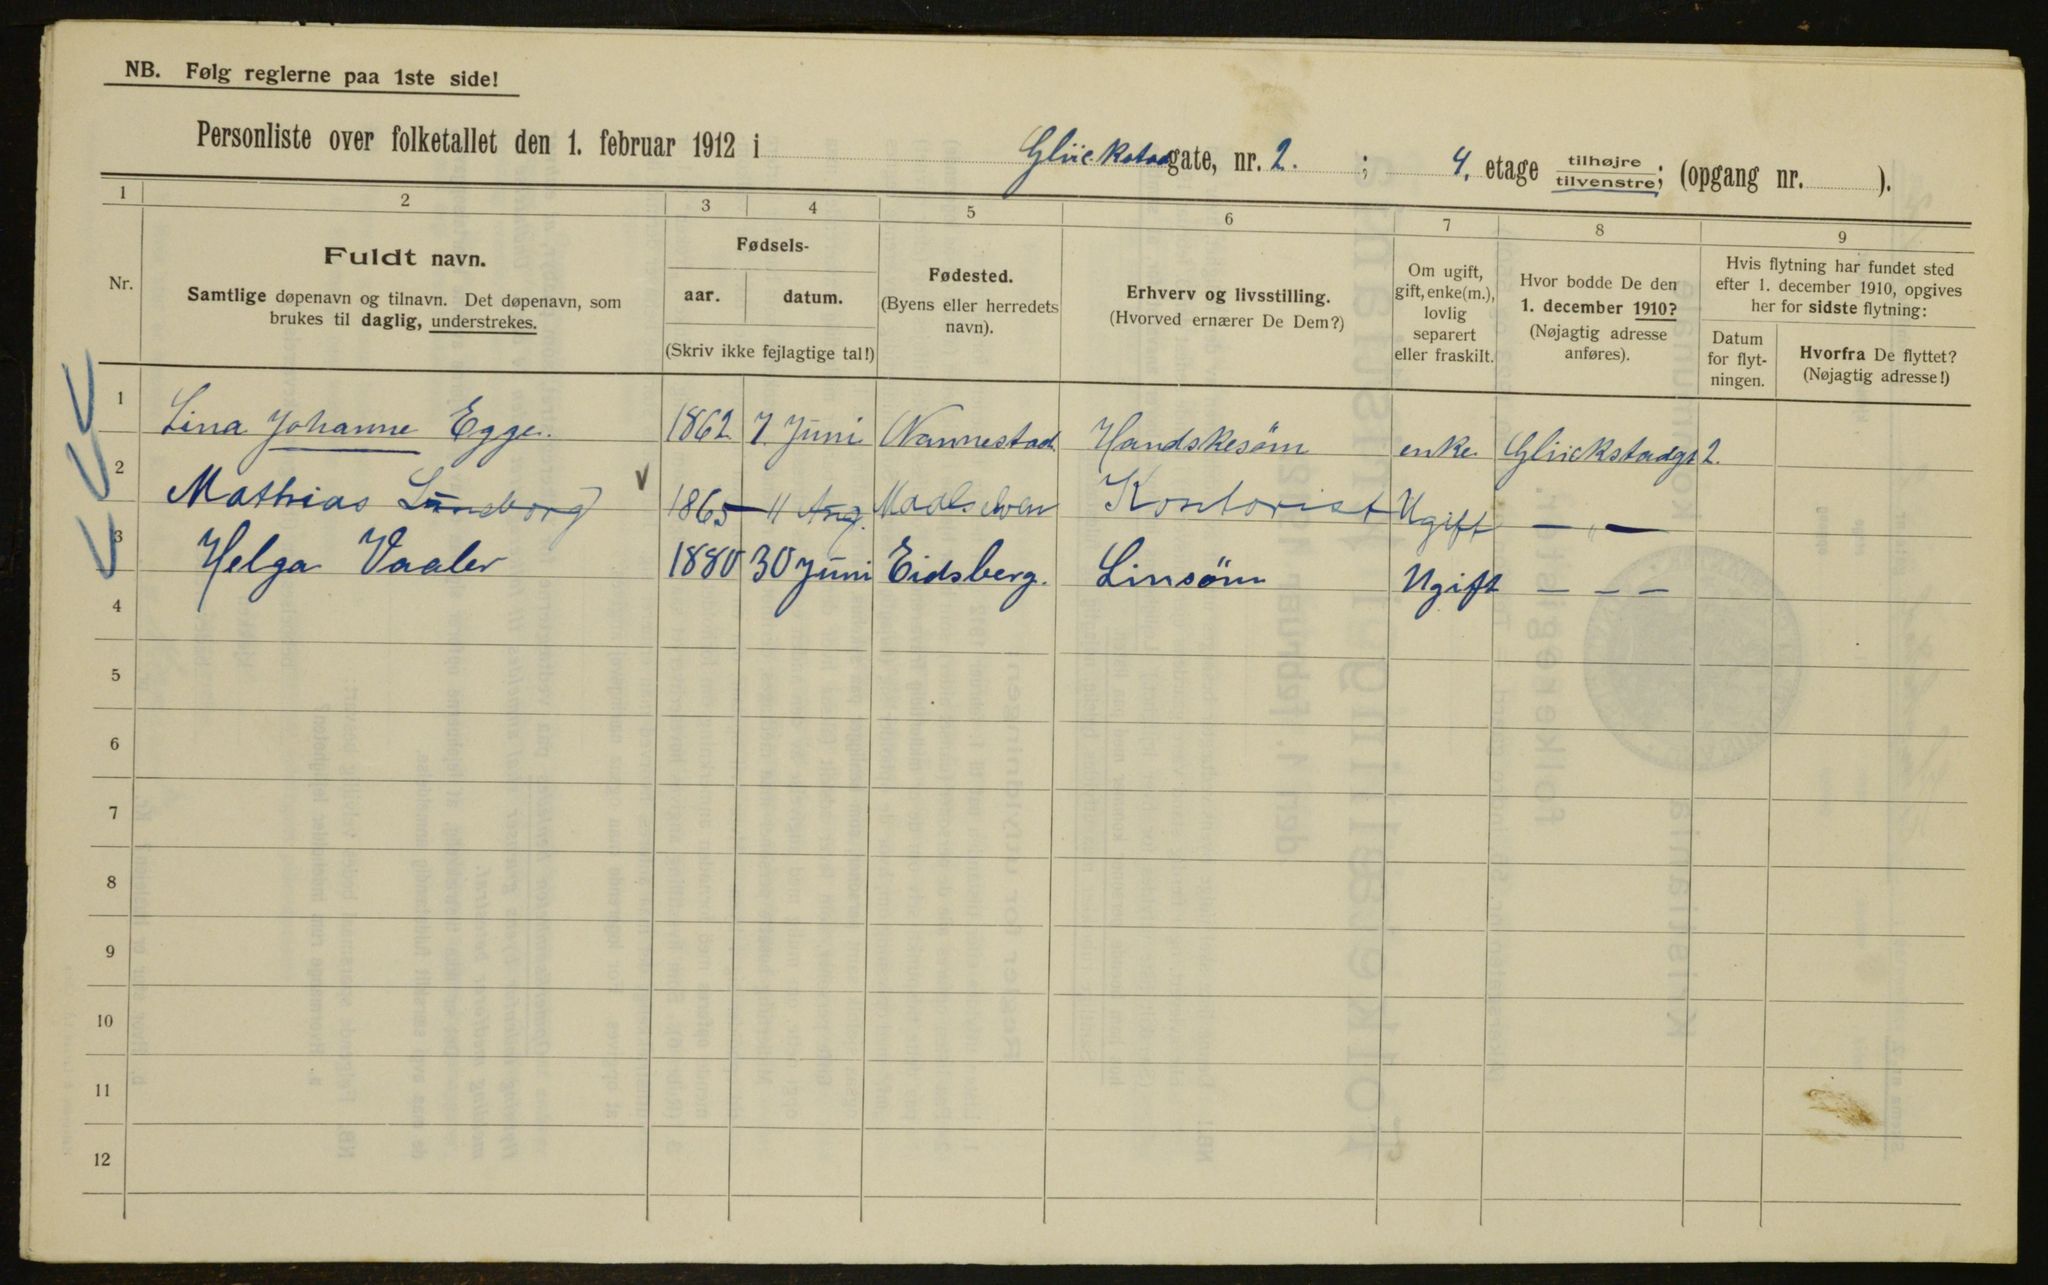 NB. Følg reglerne paa 1ste side!
Personliste over folketallet den 1. februar 1912 i Glückstadgate, nr. 2. ; 4. etage tilhøjre tilvenstre; (opgang nr. ).
1 2 3 4 5 6 7 8 9
Nr.
Fuldt navn.
Samtlige døpenavn og tilnavn. Det døpenavn, som
brukes til daglig, understrekes.
Fødsels-
aar. datum.
(Skriv ikke fejlagtige tal!)
Fødested.
(Byens eller herredets
navn).
Erhverv og livsstilling.
(Hvorved ernærer De Dem?)
Om ugift,
gift, enke(m.),
lovlig
separert
eller fraskilt.
Hvor bodde De den
1. december 1910?
(Nøjagtig adresse
anføres).
Hvis flytning har fundet sted
efter 1. december 1910, opgives
her for sidste flytning:
Datum
for flyt-
ningen.
Hvorfra De flyttet?
(Nøjagtig adresse!)
1 Lina Johanne Egge. 1862 7 Juni Nannestad Handskesøm enke Glückstadgt 2.
2 Mathias Lundborg 1865 11 Aug. Maalselven Kontorist Ugift — „ —
3 Helga Vaaler 1880 30 Juni Eidsberg. Linsøm Ugift — — —
4
5
6
7
8
9
10
11
12